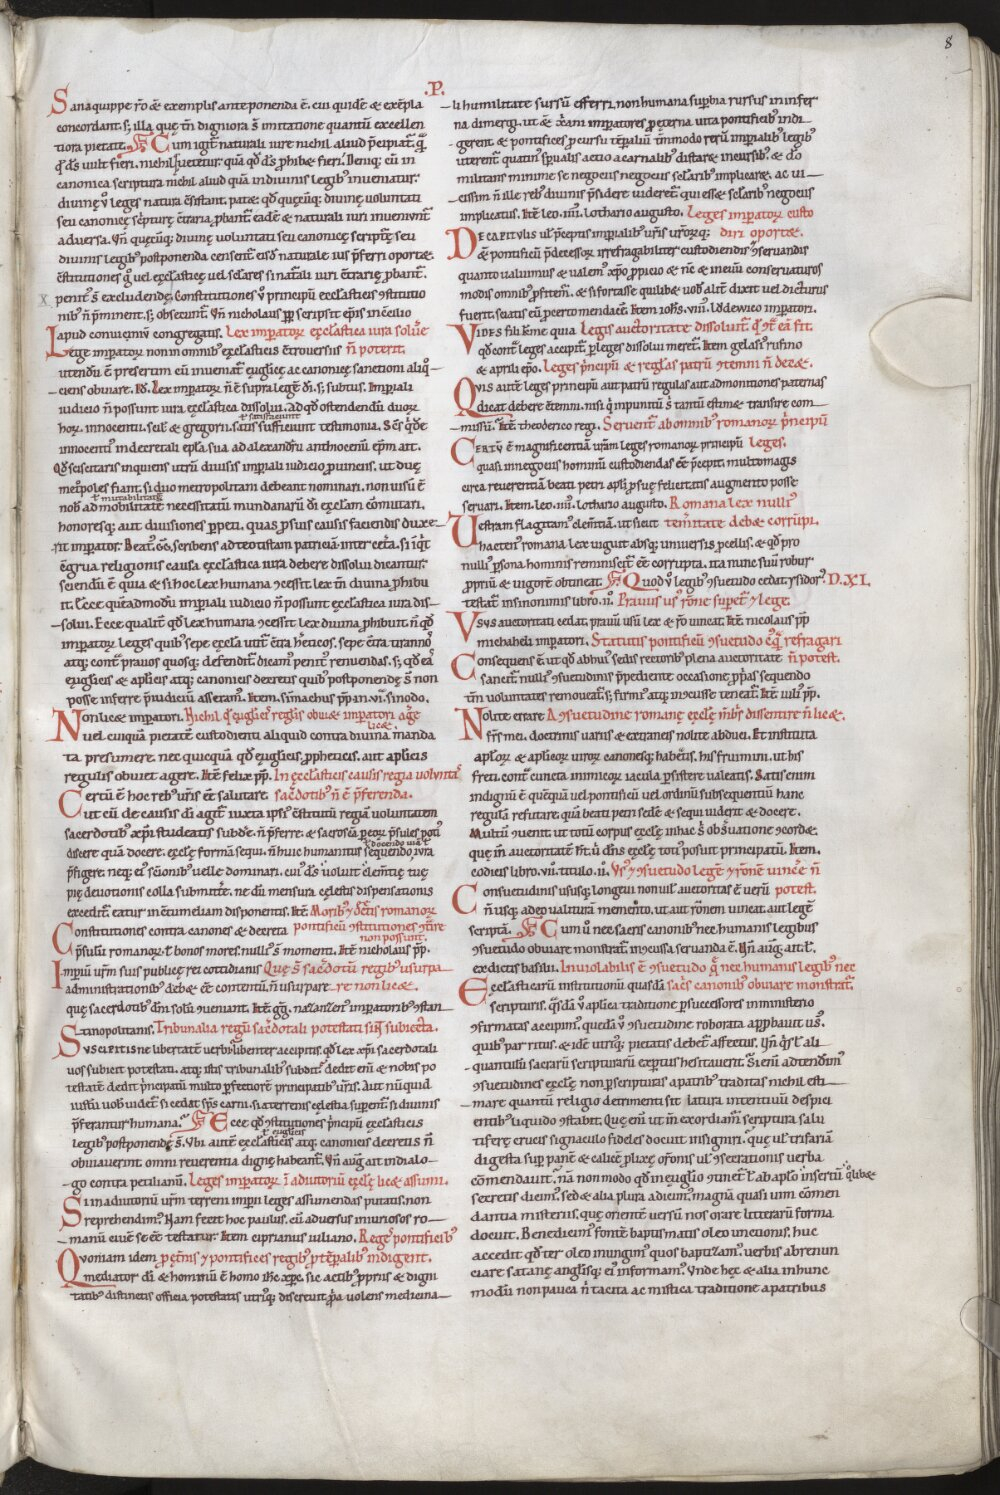 8
.P.
Sana quippe rō & exemplis anteponenda ē. cui quidē & exēpla
concordant. s; illa quę tm̄ digniora s̄ imitatione quantū excellen
tiora pietate. Cum igit̄ naturali iure nichil aliud p̄cipiat̄. q̄
qd d's vult fieri. nichil uetetur. quā qd d's phibet fieri. Deniq; cū in
canonica scriptura nichil aliud quā in diuinis legib' inueniatur.
diuinę ū leges natura c̄sistant. patet qd quęcūq; diuinę voluntati
seu canonicę sc̄pturę c̄traria pbant̄. eadē & naturali iuri inveniunt̄
adversa. Vn̄ quęcūq; divinę voluntati seu canonicę scriptę seu
divinis legib' postponenda censent̄. eisd' naturale ius p̄ferri oportet.
c̄stitutiones g° vel excl'asticę vel sel'ares si nat̄ali iuri c̄trarię pbant̄.
penit' s̄ excludendę. Constitutiones ū principum eccl'asticis 9stitutio
nib' n̄ p̄minent. s; obsecunt̄. Vn̄ nicholaus pp̄ scripsit ep̄is in c̄cilio
apud conuicinū congregatis. Lex imperatoꝝ ęxcl'astica iura soluere
Lege imperatoꝝ non in omnib' ęxcl'asticis c̄troversiis n̄ poterit.
utendū ē presertim cū inveniat̄ euḡlicę ac canonicę sanctioni aliq°
ciens obviare. Id'. Lex imp̄atoꝝ n̄ ē supra legē d'i. s; subtus. Imp̄iali
iudicio n̄ possunt iura ęxcl'astica dissolui. ad qd ostendendū duoꝝ
hoꝝ. innocentii. scil' & gregorii. satis sufficiunt testimonia. Sc̄s q°de
ł satisfaciunt
innocentī in decretali epl'a sua ad alexandrū anthocenū ep̄m ait.
Qd sciscitaris inquiens utrū divisis imp̄iali iudicio pvinciis. ut duę
metpoles fiant. si duo metropolitani debeant nominari. non visū ē
ł mutabilitatē
nob' ad mobilitatē necessitatū mundanarū d'i excl'am c̄mutari.
honoresq; aut divisiones ppeti. quas p suis causis faciendis duxe
rit imperator. Beat' G°G. scribens ad teotistam patriciā. inter cet̄a. si igit̄
c̄grua religionis causa ęxcl'astica iura debere dissolui dicantur.
sciendū ē quia & si hoc lex humana 9cessit. lex tm̄ divina phibu
it. Ecce quēadmodū imp̄iali iudicio n̄ possunt ęxcl'astica iura dis
solui. Ecce qualit̄ qd lex humana 9cessit lex divina phibuit. n̄ qd
imp̄atoꝝ leges quib' sepe ęxcl'a utit̄ c̄tra hęreticos. sepe c̄tra tirannos
atq; cont̄ pravos quosq; defendit̄. dicam' penit' renuendas. s; qd eas
euḡlicis & apl'icis atq; canonicis decretis quib' postponendę s̄ non
posse inferre p̄iudiciū asseram'. Item. simachus pp̄ in. vi. sinodo.
Non licet imperatori. Nichil qd euḡlicis regl'is obviet imp̄atori agere
licet.
vel cuiquā pietatē custodienti aliquid contra divina manda
ta presumere. nec quicquā qd euḡlicis. ppheticis. aut apl'icis
regulis obviet agere. Itē felix pp̄. In ęxcl'asticis causis regia volunta'
Certū ē hoc reb' vr̄is ēē salutare. sac̄dotib' n̄ ē p̄ferenda.
ut cū de causis d'i agit̄ iuxta ipsi' c̄stitutū regiā voluntatem
sacerdotib' xpi studeatis subd'e. n̄ p̄ferre. & sacrosc̄a p eoꝝ p̄sules poti'
discere quā docere. ęxcl'ę formā sequi. n̄ huic humanitus sequendo iura
p̄figere. neq; ei' sc̄ionib' velle dominari. cui' d's voluit clem̄tię tuę
pię devotionis colla submitt̄e. ne dū mensura cęlestis dispensationis
excedit̄. eatur in c̄tumeliam disponentis. Itē Morib' & d'c̄tis romanoꝝ
Constitutiones contra canones & decreta pontificū 9stitutiones 9t̄ire
p̄sulū romanoꝝ. ł bonos mores. nulli' s̄ momenti. Itē nicholaus pp̄. non possunt.
Imperiū vr̄m suis publicę rei cotidianis Quę s̄ sac̄dotū regib' usurpa
administrationib' debet ēē contentū. n̄ usurpare re non licet.
que sacerdotib' dn̄i solū 9uenant. Itē. Gḡ. nałanzen' imperatorib' 9stan
tinopolitanis. Tribunalia regū sac̄dotali potestati sūt subiecta.
Suscipitis ne libertatē verbi. libenter accipitis. qd lex xpi sacerdotali
vos subiecit potestati. atq; istis tribunalib' subdit̄. dedit enī & nobis po
testatē. dedit p̄ncipatū multo pfectiorē principatib' vr̄is. Aut nūquid
iustū vob' videt̄ si cedat sp̄s carni. si a terrenis cęlestia superent̄. si divinis
p̄ferantur humana. Ecce qd 9stitutiones p̄ncipū ęxcl'asticis
legib' postponendę s̄. Vbi autē ęxcl'asticis atq; canonicis decretis n̄
obviaverint omni reverentia dignę habeant̄. Vn̄ aug' ait in dialo
go contra petilianū. Leges imp̄atoꝝ ī adiutoriū ęxcl'ę licet assumi.
Si in adiutoriū vr̄m terreni imperii leges assumendas putatis. non
reprehendim'. Nam fecit hoc paulus. cū adversus iniuriosos ro
manū civē se ēē testatur. Item ciprianus iuliano. Reges pontificib'
Quoniam idem p ęternis & pontifices regib' p tēpalib' indigent.
mediator d'i & hominū ē homo ih's xpc. sic actib' ppriis & digni
tatib' distinctis officia potestatis utriq; discrevit. ppa volens medicina
li humilitate sursū efferri. non humana superbia rursus in infer
na dimergi. ut & xp̄iani imperatores p ęterna vita pontificib' indi
gerent. & pontifices p cursu tēpaliū tm̄modo rerū imperialib' legib'
uterent̄. quatin' sp̄ualis actio a carnalib' distaret incursib'. & d'o
militans minime se negociis negociis scl'arib' implicaret. ac vi
cissim n̄ ille reb' divinis p̄sidere videret̄. qui esset scl'arib' negociis
implicatus. Itē leo. iiii. Lothario augusto. Leges imperatoꝝ custo
De capitulis ul' p̄ceptis imperialib' vr̄is vr̄orūq; diri oportet.
& pontificū p̄decessoꝝ irrefragabiliter custodiendis 9servandis
quanto valuimus & valem' xpo ppicio & nc̄ & in evū conservaturos
modis omnib' pfitem'. & si fortasse quilibet vob' alit̄ dixit vel dicturus
fuerit. sciatis eū p certo mendacē. Item ioh's. viii. lodewico imperatori.
Vides fili k̄me quia Legis auctoritate dissoluit̄. qd 9t̄ eā fit.
qd cont̄ leges accipit̄. p leges dissolui meret̄. Item gelasi' rufino
& aprili ep̄o. Leges p̄ncipū & regl'as patrū 9temni n̄ debet.
Quis autē leges principū aut patrū regulas aut admonitiones paternas
dicat debere c̄temni. nisi q' impunitū s̄ tantū estimet transire com
missū. Itē theoderico regi. Serventur ab omnib' romanoꝝ p̄ncipū
Certū ē magnificentiā vr̄am leges romanoꝝ principū leges.
quas in negociis hominū custodiendas ēē p̄cepit. multomagis
circa reverentiā beati petri apl'i p suę felicitatis augmento posse
servari. Item leo. iiii. lothario augusto. Romana lex nulli'
Vestram flagitam' clem̄tiam. ut sicut temeritate debet corrūpi.
hacten' romana lex viguit absq; universis pcellis. & qd pro
nulli' psona hominis reminiscit̄ ēē corrupta. ita nunc suū robur
ppriū & vigorē obtineat. Quod ū legib' 9suetudo cedat. ysidor'. D. XI.
testat̄ in sinonimis libro. ii. Pravus us' rōne superet̄ & lege.
Usus auctoritati cedat. pravū usū lex & rō vincat. Itē nicolaus pp̄
michaheli imperatori. Statutis pontificū 9suetudo ēq̄ refragari
Consequens ē ut qd ab huī sedis rectorib' plena auctoritate n̄ potest.
sancit̄. nulli' 9suetudinis p̄pediente occasione. pprias sequendo
tm̄ voluntates removeat̄. s; firmi' atq; incusse teneat̄. Itē iuli' pp̄.
Nolite errare A 9suetudine romanę ęxcl'ę m̄bris dissentire n̄ licet.
fr̄s mei. doctrinis variis & extraneis nolite abduci. Et instituta
apl'oꝝ & apl'icoꝝ viroꝝ canonesq; habetis. his fruimini. ut his
freti. cont̄ cuncta inimicoꝝ iacula psistere valeatis. Satis enim
indignū ē quēquā vel pontificū vel ordinū subsequentiū hanc
regulā refutare. quā beati petri sedē & sequi viderit & docere.
Multū 9venit. ut totū corpus ęxcl'ę in hac s̄ obs'vatione 9cordet.
quę in auctoritatē h't. ū d'ns ęxcl'ę toti' posuit principatū. Item.
codicis libro. vii. titulo. ii. Vs' & 9suetudo legē & rōnē vinc̄e n̄
Consuetudinis ususq; longęui non vil' auctoritas ē verū potest.
n̄ usq; adeo valitura memento. ut aut rōnem vincat. aut legē
scriptā. Cum ū nec sacris canonib' nec humanis legibus
9suetudo obviare monstrat̄. incussa servanda ē. Vn̄ aug'. ait. ł'.
ex dictis basilii. Inviolabilis ē 9suetudo q̄ nec humanis legib' nec
Ecclesiasticarū institutionū quasdā sac̄s canonib' obviare monstrat̄.
scripturis. q°sdā ū aplica traditione p successores in ministerio
9firmatas accepim'. quedā ū 9suetudine roborata approbavit us'.
quib' par ritus. & idē utriq; pietatis debet̄ affectus. Vn̄ q'sl' ali
quantulū sacrarū scripturarū expertus hesitaverit. Si enī adtendim'
9suetudines ęxcl'ę non p scripturis a patrib' traditas nichil esti
mare. quantū religio detrimenti sit latura intentiuū despici
entib' liquido 9stabit. Quę enī. ut in exordiam' scriptura salu
tiferę crucis signaculo fideles docuit insigniri. quę ul' trifariā
digesta sup panē & calicē plixę or̄onis ul' 9secrationis verba
cōmendavit. nā non modo qd in euḡlio 9tinet̄. ł ab aplo insertū q°libet
secretis dicim'. sed & alia plura adicim'. magnā quasi vim cōmen
dantia misteriis. quę orientē versū nos orare litterarū forma
docuit. Benedicim' fontē baptismatis oleo unctionis. huc
accedit qd ter oleo inungim' quos baptizam'. verbis abrenun
ciare satanę anglisq; ei' informam'. Vnde hęc & alia in hunc
modū non pauca n̄ tacita ac mistica traditione a patribus